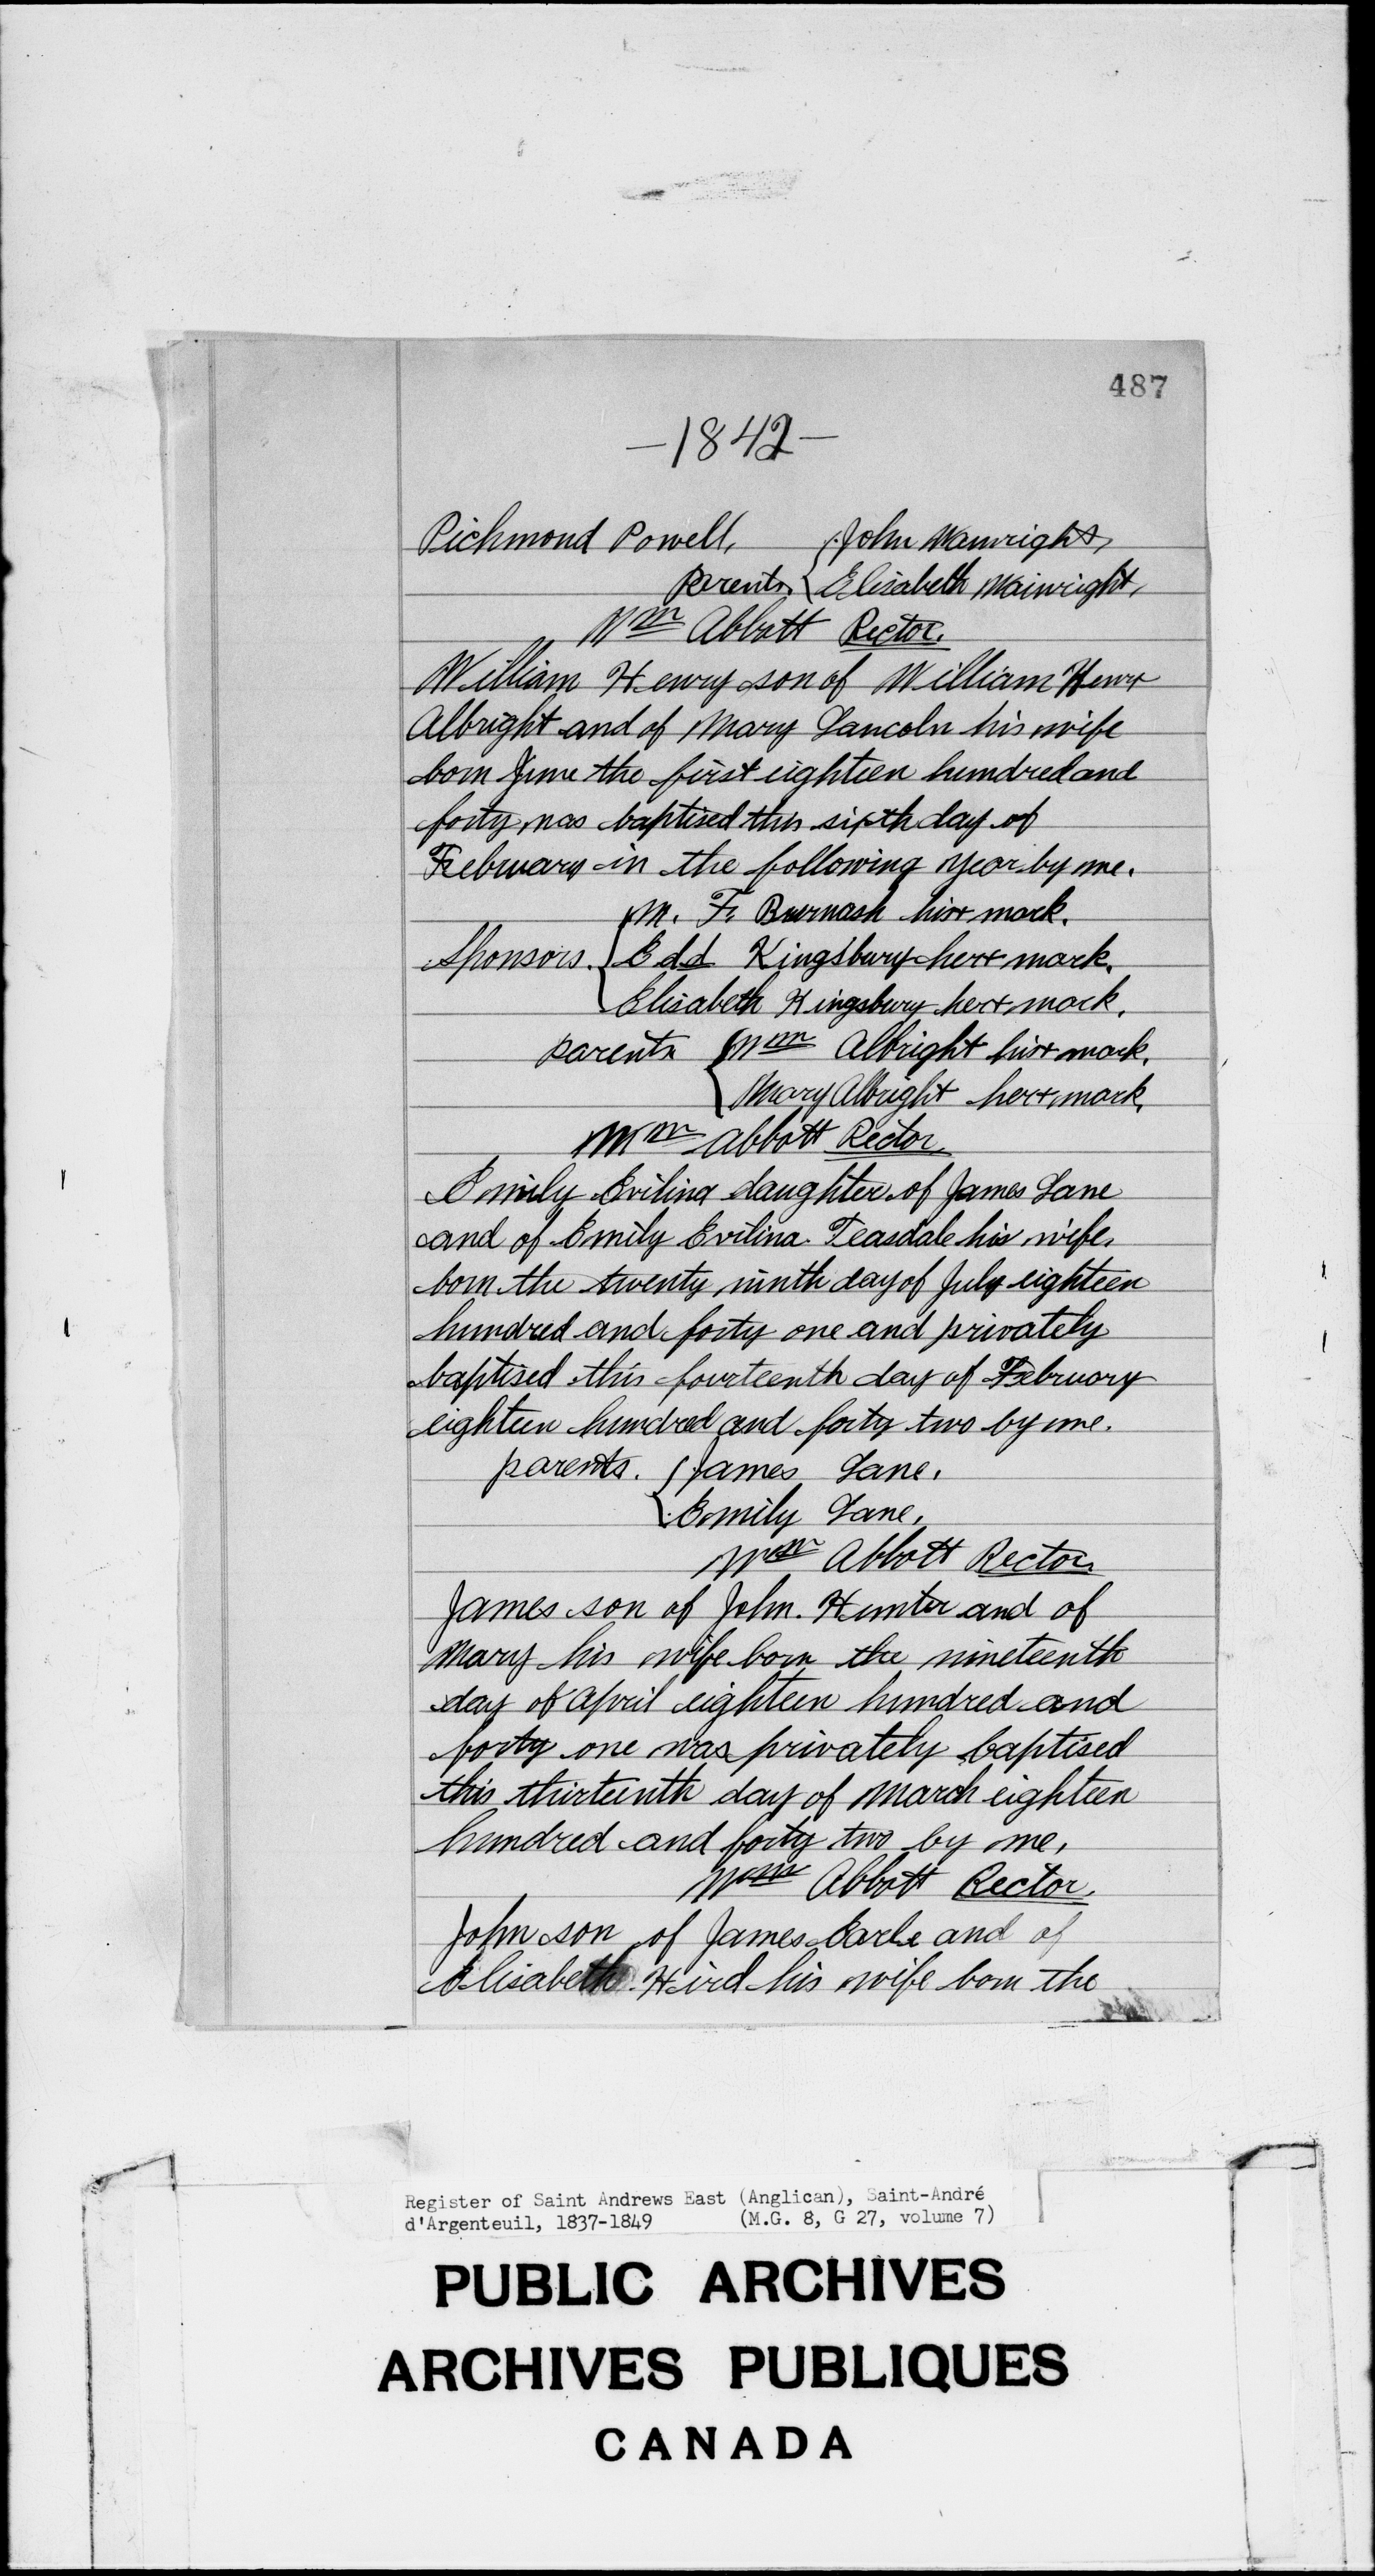 487
—1842—
Richmond Powell, { John Wainright,
Parents. { Elisabeth Wainright,
Wm Abbott Rector.
William Henry son of William Henry
Albright and of Mary Lancoln his wife
born June the first eighteen hundred and
forty, was baptised this sixth day of
February in the following year by me.
M. F. Burnash his x mark.
Sponsors. { Edd Kingsbury her x mark.
Elisabeth Kingsbury her x mark.
parents { Wm Albright his x mark.
Mary Albright her x mark.
Wm Abbott Rector.
Emily Evilina daughter of James Lane
and of Emily Evilina Teasdale his wife,
born the twenty ninth day of July eighteen
hundred and forty one and privately
baptised this fourteenth day of February
eighteen hundred and forty two by me.
parents. { James Lane.
Emily Lane.
Wm Abbott Rector.
James son of John Hunter and of
Mary his wife born the nineteenth
day of April eighteen hundred and
forty one was privately baptised
this thirteenth day of March eighteen
hundred and forty two by me,
Wm Abbott Rector.
John son of James Earle and of
Elisabeth Hird his wife born the
Register of Saint Andrews East (Anglican), Saint-André
d'Argenteuil, 1837-1849 (M.G. 8, G 27, volume 7)
PUBLIC ARCHIVES
ARCHIVES PUBLIQUES
CANADA